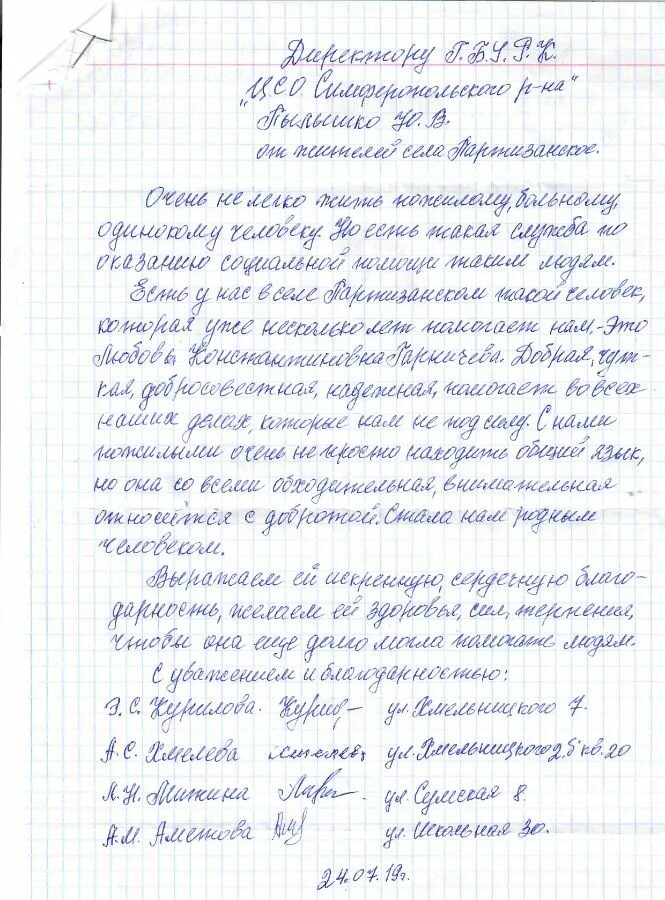 Директору Г.Б.У.Р.К.
"ЦСО Симферопольского р-на"
Пылышко Ю.В.
от жителей села Партизанское.
Очень нелегко жить пожилому, больному,
одинокому человеку. Но есть такая служба по
оказанию социальной помощи таким людям.
Есть у нас в селе Партизанском такой человек,
которая уже несколько лет помогает нам. - Это
Любовь Константиновна Гарничева. Добрая, чут-
кая, добросовестная, надежная, помогает во всех
наших делах, которые нам не под силу. С нами
пожилыми очень не просто находить общий язык,
но она со всеми обходительная, внимательная
относится с добротой. Стала нам родным
человеком.
Выражаем ей искреннюю, сердечную благо-
дарность, желаем ей здоровья, сил, терпения,
чтобы она еще долго могла помогать людям.
С уважением и благодарностью:
З.С. Курилова. ул. Хмельницкого 7.
А.С. Хмелева ул. Хмельницкого 25 кв. 20
Л.Н. Мижина ул. Сумская 8.
А.М. Аметова ул. Школьная 30.
24.07.19г.